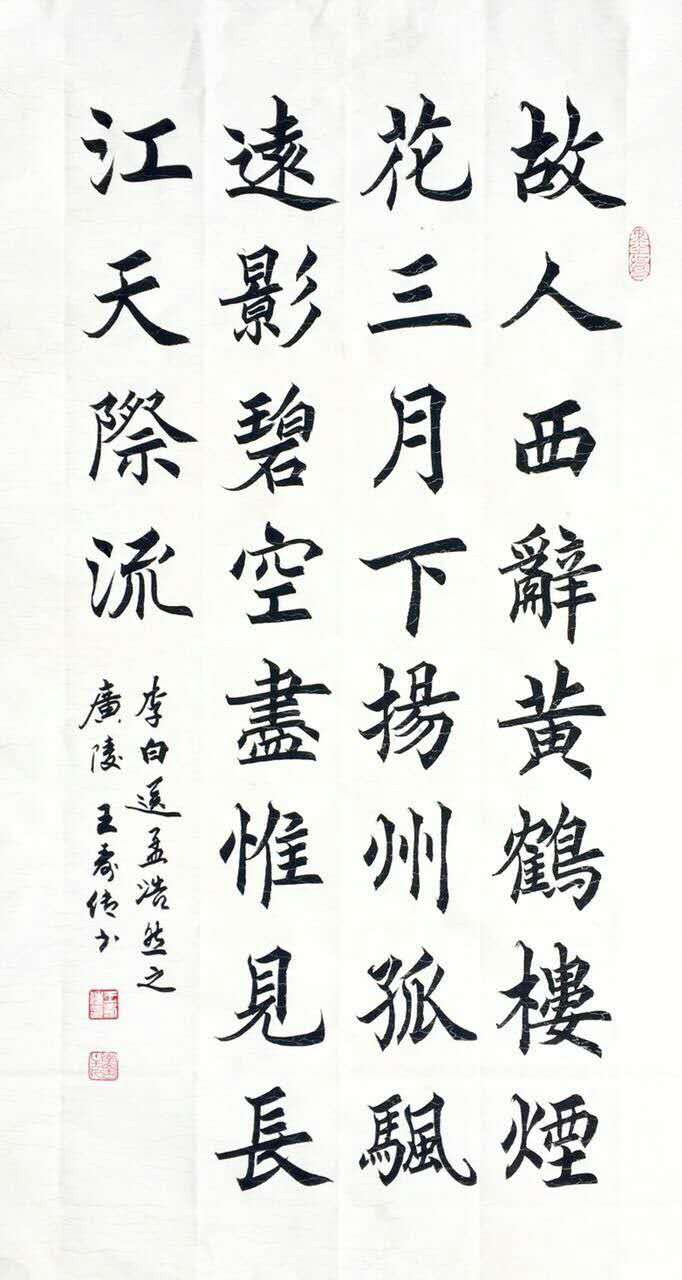 故人西辭黃鶴樓煙
花三月下揚州孤颿
遠影碧空盡惟見長
江天際流
李白送孟浩然之
廣陵 王壽传书